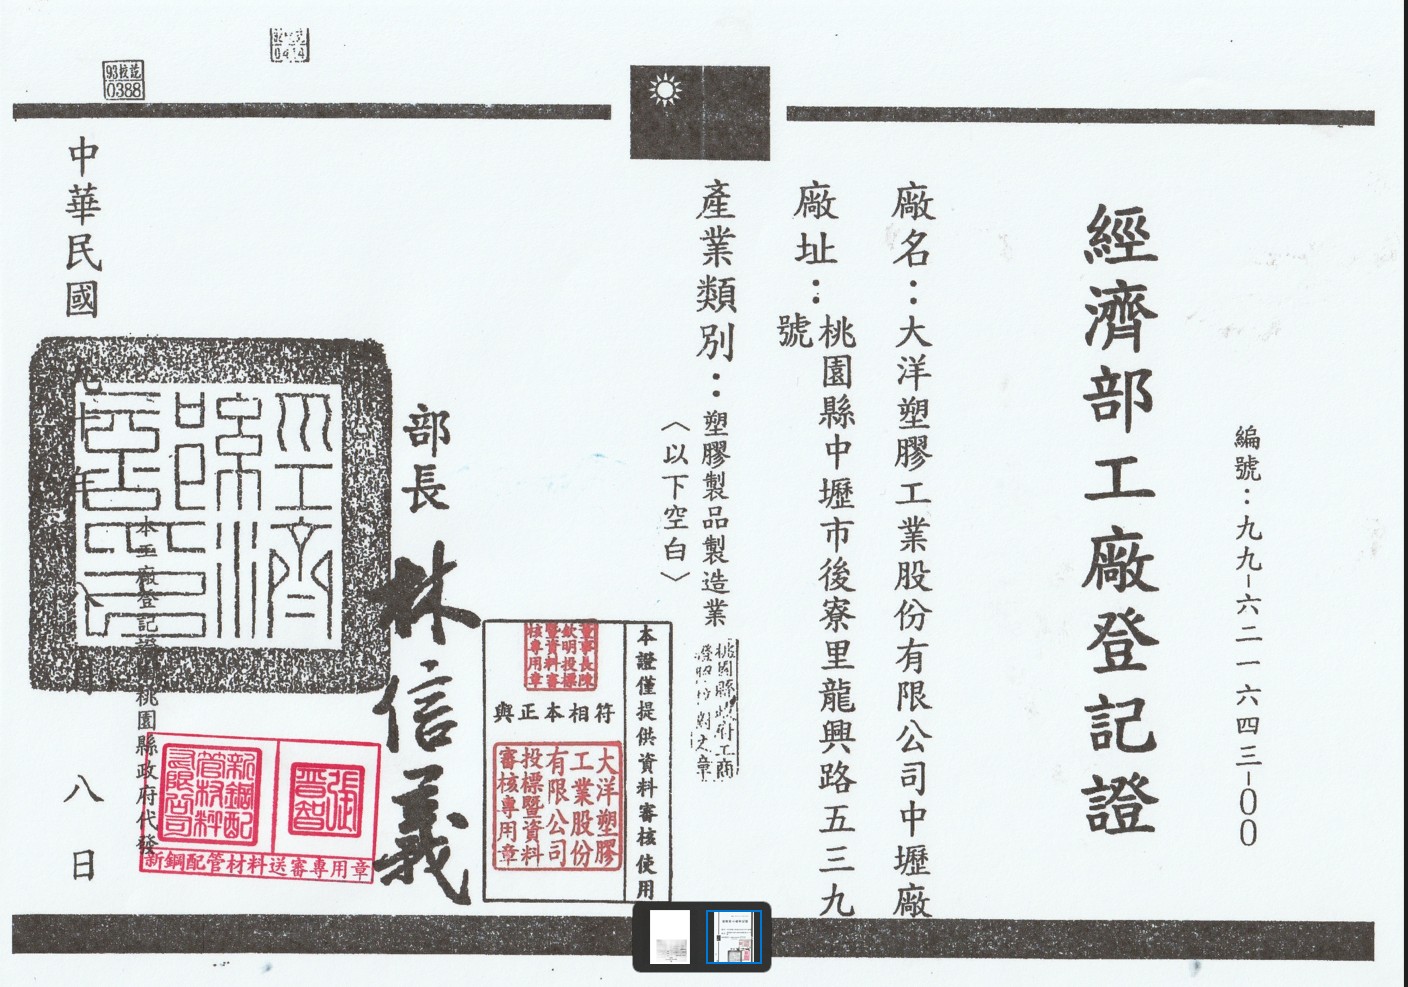 編號：九九-六二一六四三-００
經濟部工廠登記證
廠名：大洋塑膠工業股份有限公司中壢廠
廠址：桃園縣中壢市後寮里龍興路五三九
號
產業類別：塑膠製品製造業
〈以下空白〉
桃園縣政府工商
部長 林信義
中華民國九十年八月八日
本工廠登記證由桃園縣政府代發
本證僅提供資料審核使用
與正本相符
董事長陳
欽明投標
暨資料審
核專用章
大洋塑膠
工業股份
有限公司
投標暨資料
審核專用章
新鋼配
管材料
有限公司
張
晉智
新鋼配管材料送審專用章
93校訖
0388